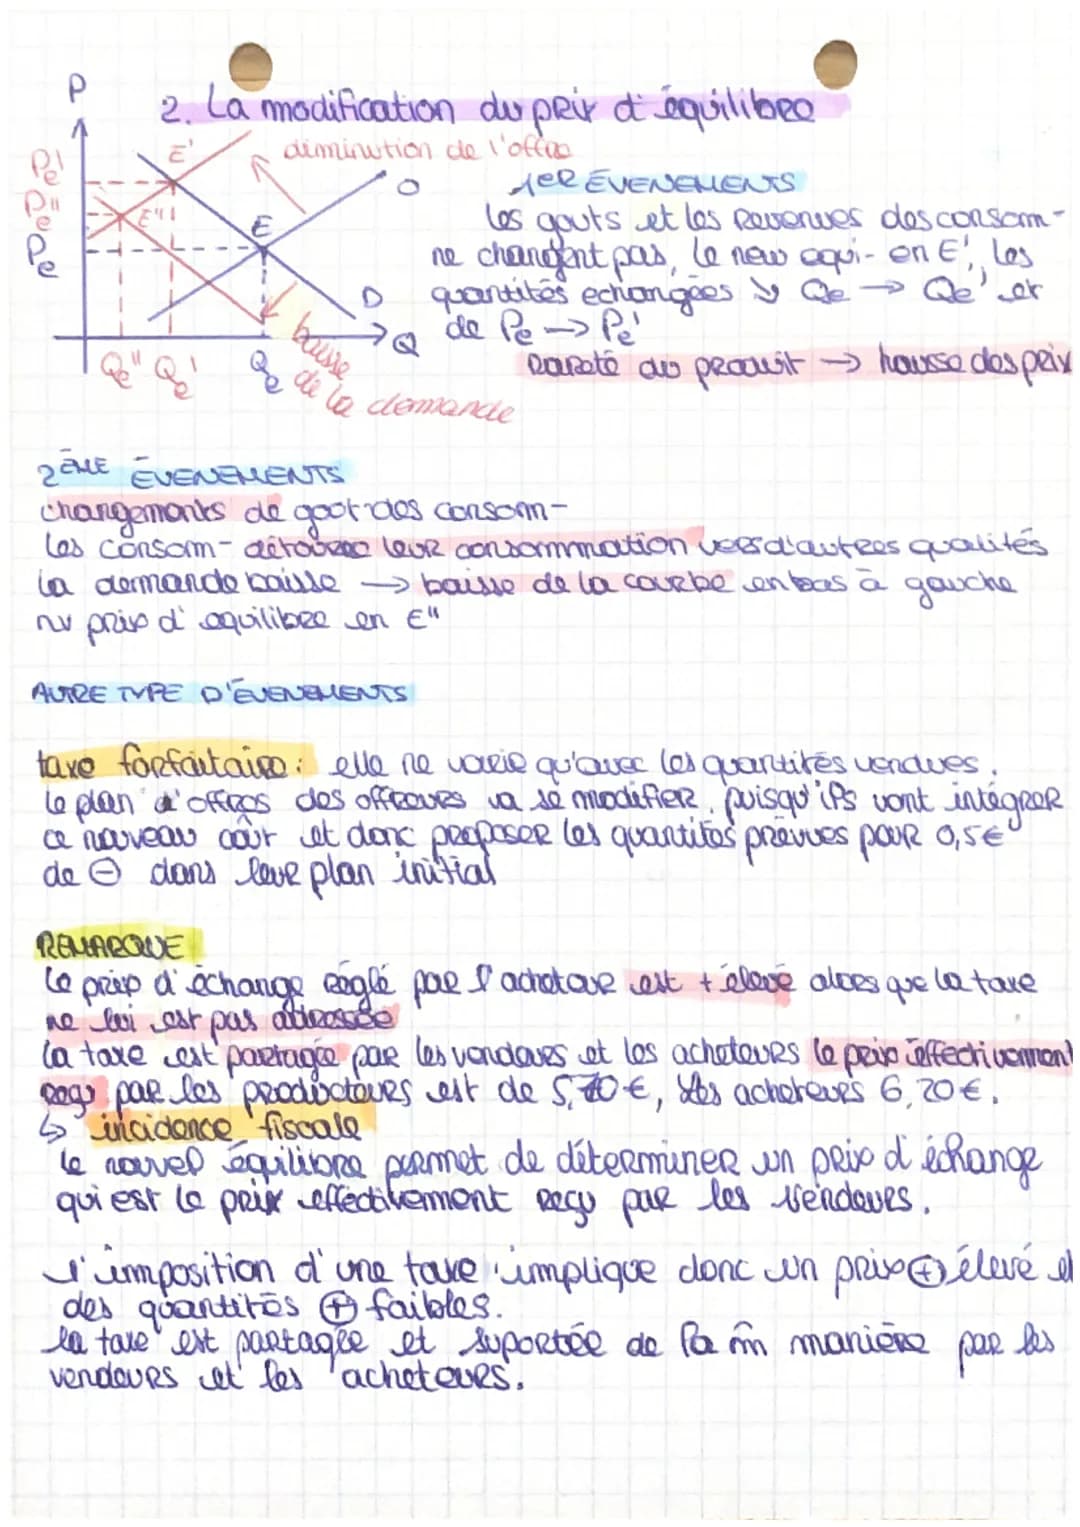 P
2. La modification du prix d'équilibre
diminution de l'offre
Pe'
Pe"
Pe
E'
E"
E
O
D
Q
Qe" Qe'
Qe
baisse
de la demande
1ER ÉVENEMENTS
Les gouts et les revenues des consom-
ne changent pas, le new equi- en E', les
quantités echangées ↘ Qe → Qe' et
de Pe → Pe'
rareté du produit → hausse des prix
2ÈME ÉVENEMENTS
changements de goot des consom-
les consom- détouree leur consommmation vers d'autres qualités
la demande baisse → baisse de la courbe en bas à gauche
nv prix d'equilibre en E"
AUTRE TYPE D'ÉVENEMENTS
taxe forfaitaire : elle ne varie qu'avec les quantités vendues.
Le plan d'offres des offreurs va se modifier, puisqu'ils vont intégrer
ce nouveau coût et donc proposer les quantités prévues pour 0,5€
de ⊖ dans leur plan initial
REMARQUE
Le prix d'échange réglé par l'acheteur est + élevé alors que la taxe
ne lui est pas adressée
La taxe est partagée par les vendeurs et les acheteurs le prix effectivement
reçu par les producteurs est de 5,70€, les acheteurs 6,20€.
↳ incidence fiscale
Le nouvel équilibre permet de déterminer un prix d'échange
qui est le prix effectivement reçu par les vendeurs.
L'immposition d'une taxe implique donc un prix ⊕ élevé et
des quantités ⊕ faibles.
la taxe est partagée et suportée de la m̂ manière par les
vendeurs et les acheteurs.